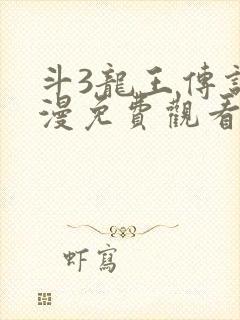 斗3龍王傳說
漫免費觀看
虾寫